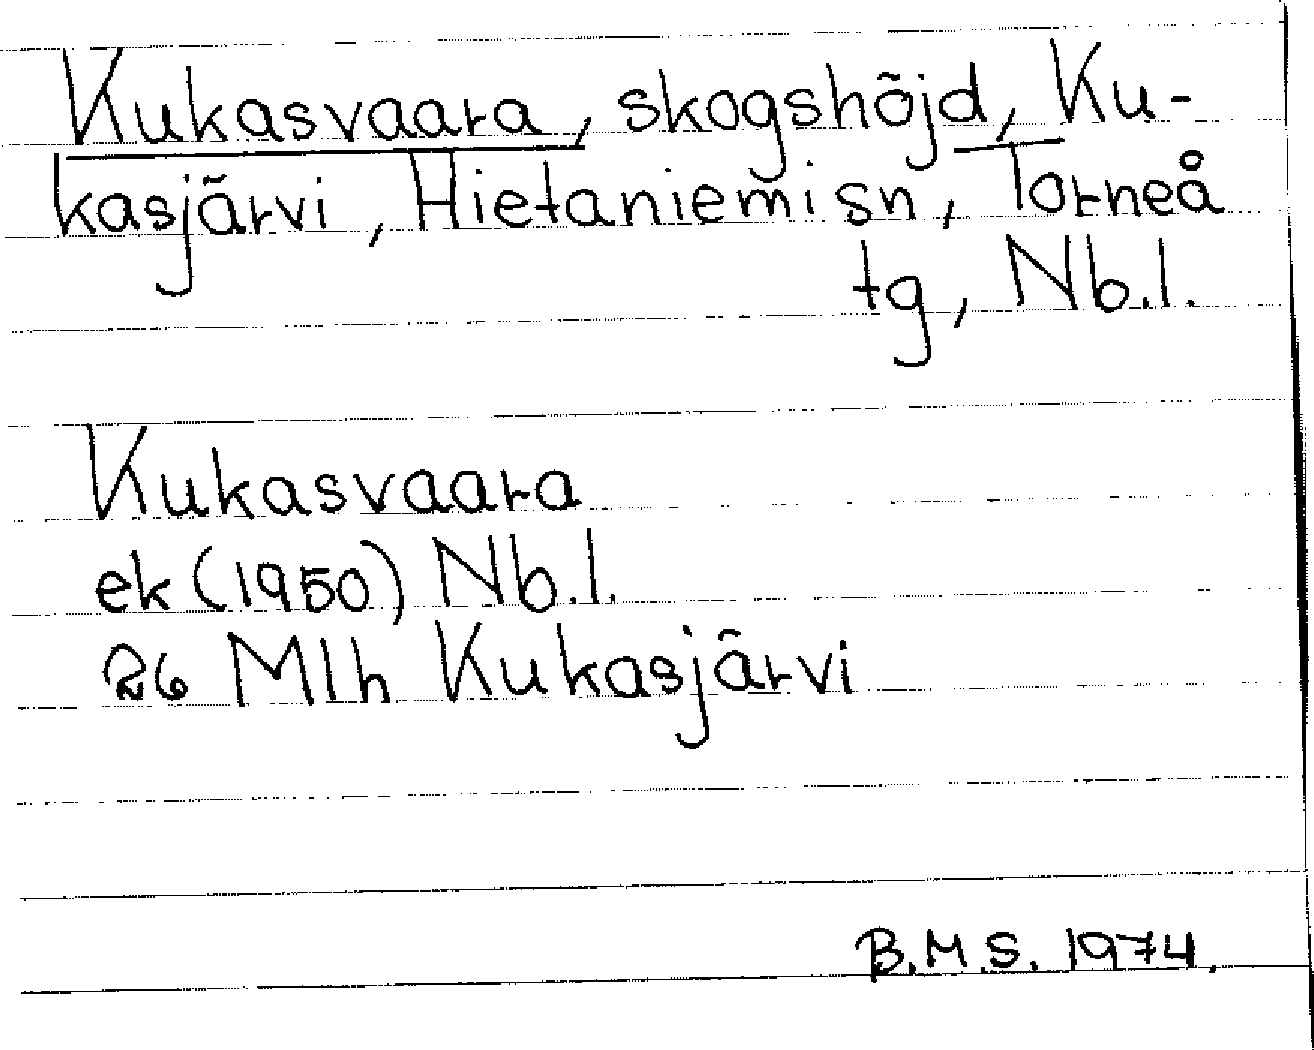 Kukasvaara, skogshöjd, Ku-
kasjärvi, Hietaniemi sn, Torneå
tg, Nb.l.
Kukasvaara
ek (1950) Nb.l.
26 Mlh Kukasjärvi
B.M.S. 1974.